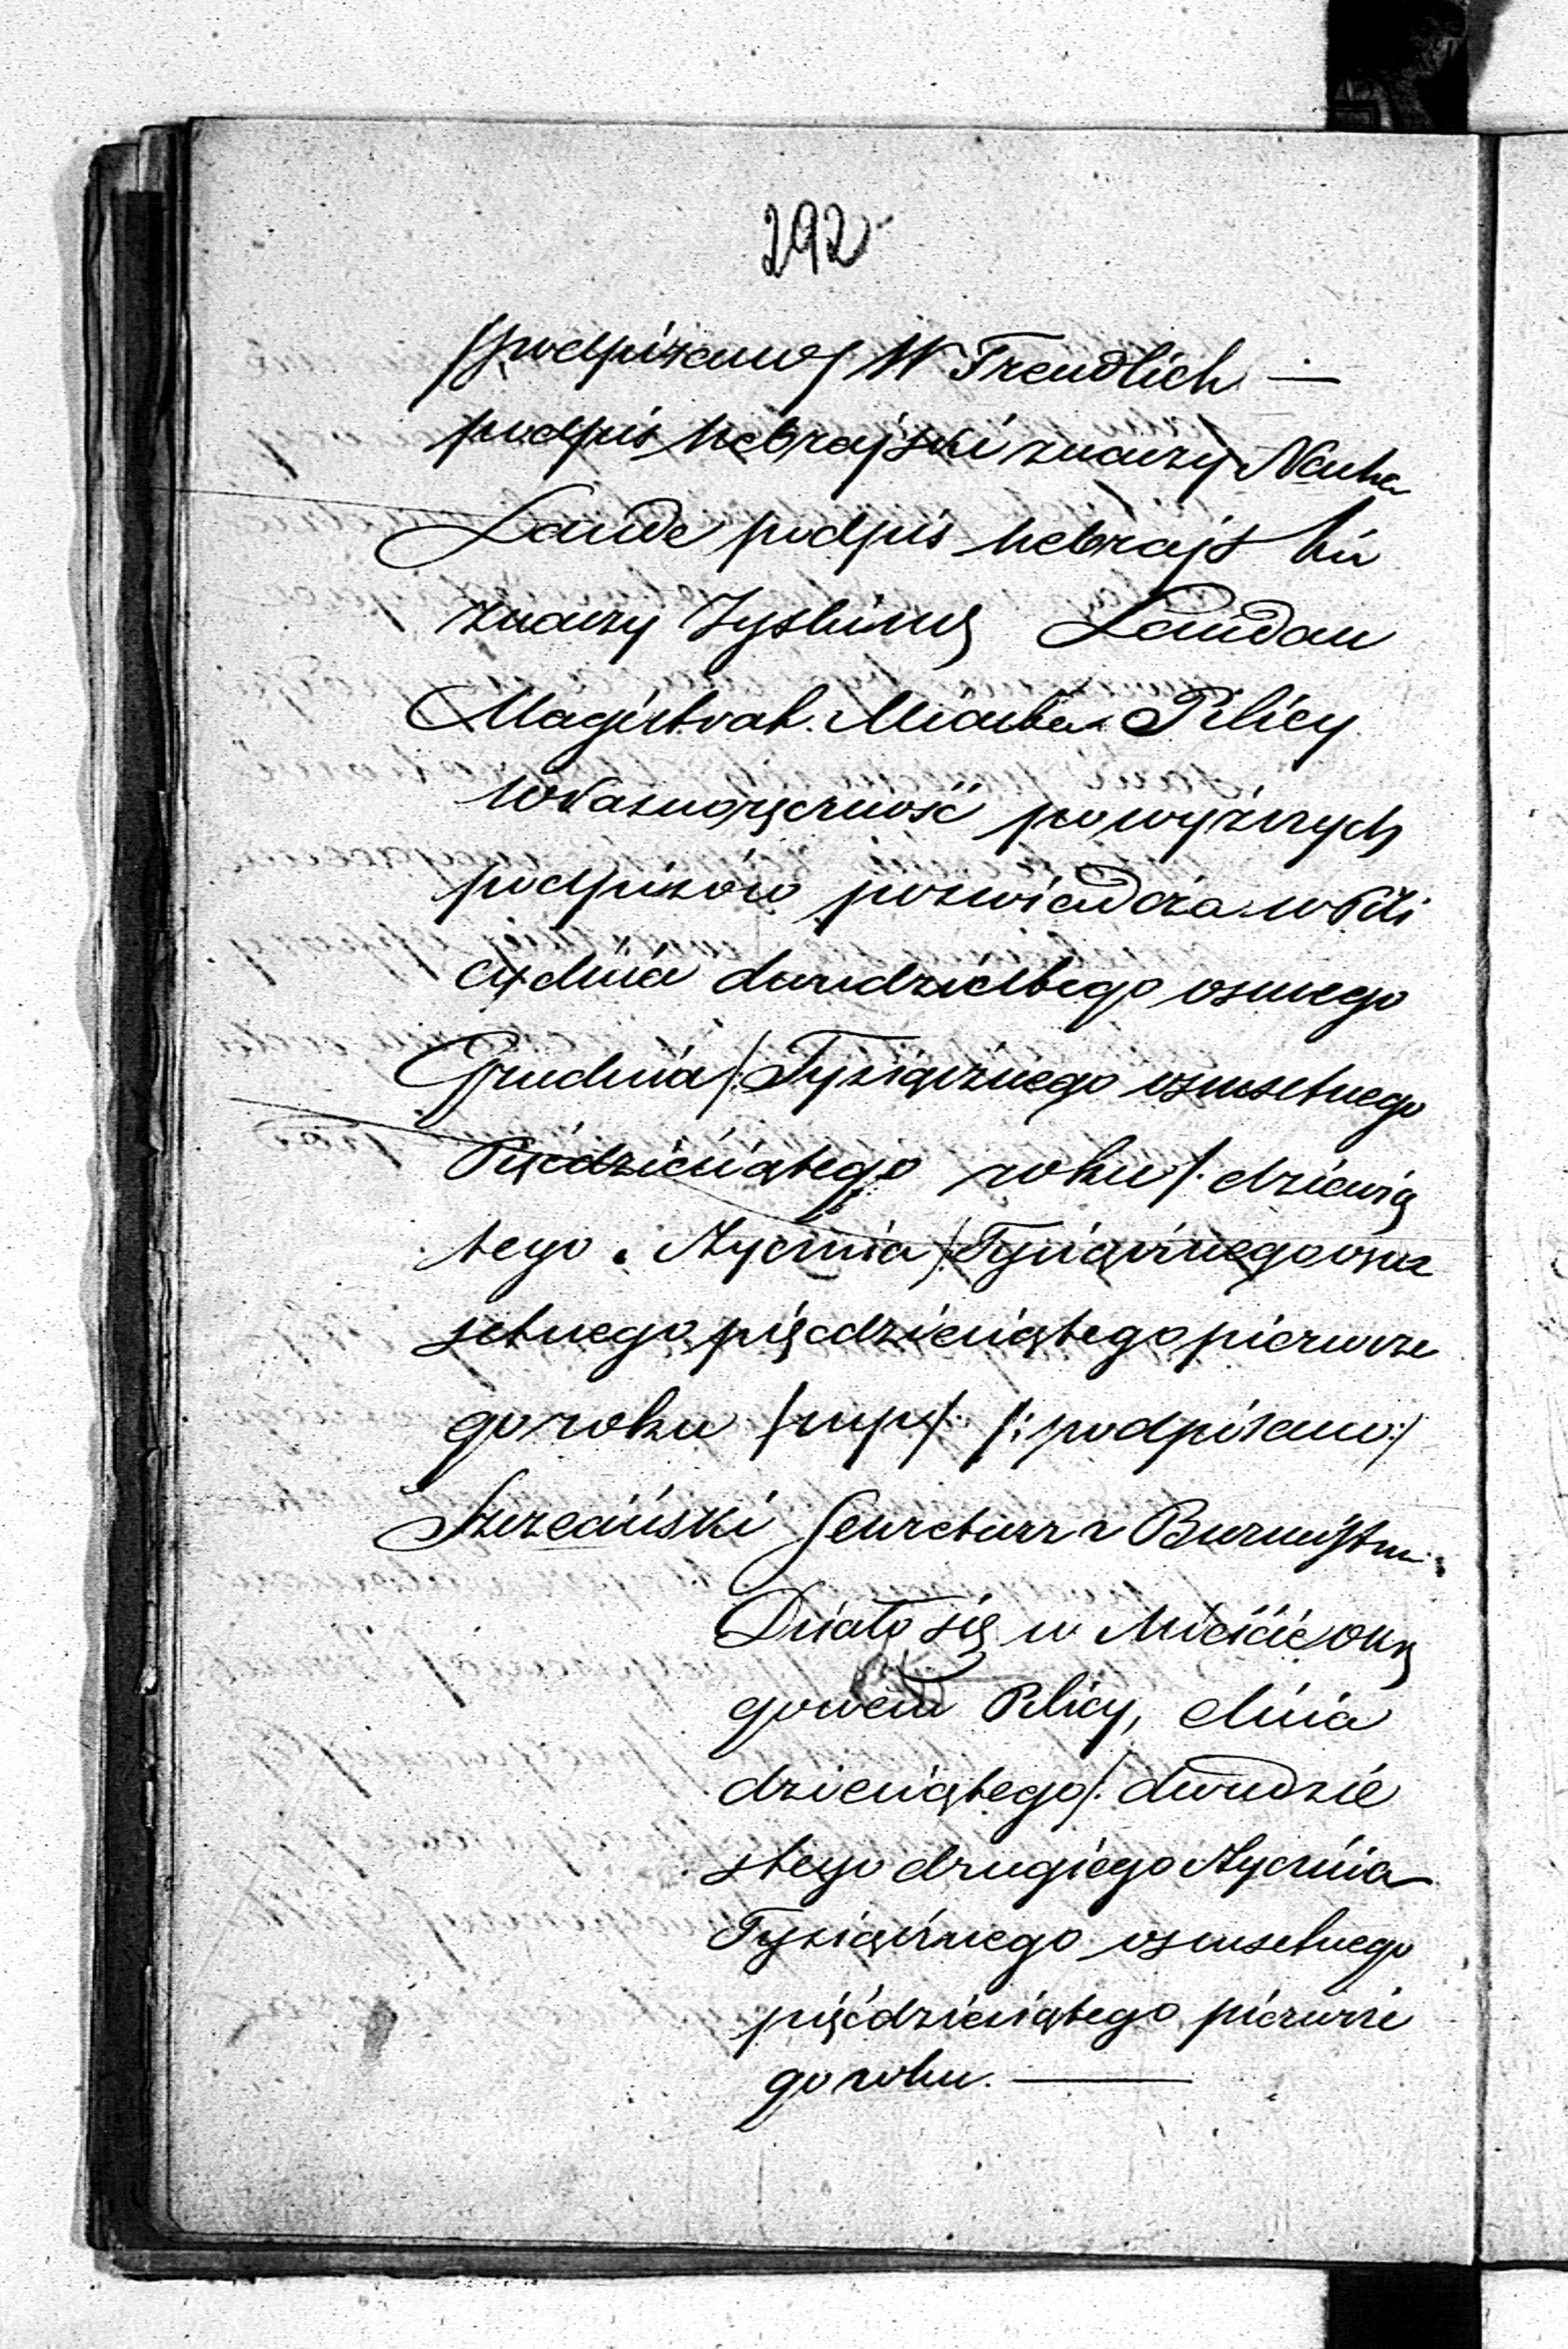 292
/podpisano/ W Freudlich —
podpis hebrajski znaczy Nauha
Lande podpis hebrajs ki
znaczy Zysking Landau
Magistrat Miasta Pilicy
własnoręczność powyższych
podpisów poświadcza w Pili
cy dnia dwudziestego osmego
Grudnia /: Tysiącznego osmsetnego
Pięćdziesiątego roku /: dziewią
tego Stycznia /: Tysiącznego osm
setnego pięćdziesiątego pierwsze
go roku /mps/: /: podpisano :/
Szreciński Sekretarz z Burmistrz
Działo się w Mieście okrę
gowem Pilicy, dnia
dziesiątego /: dwudzie
stego drugiego Stycznia
Tysiącznego osmsetnego
pięćdziesiątego pierwsze
go roku. —